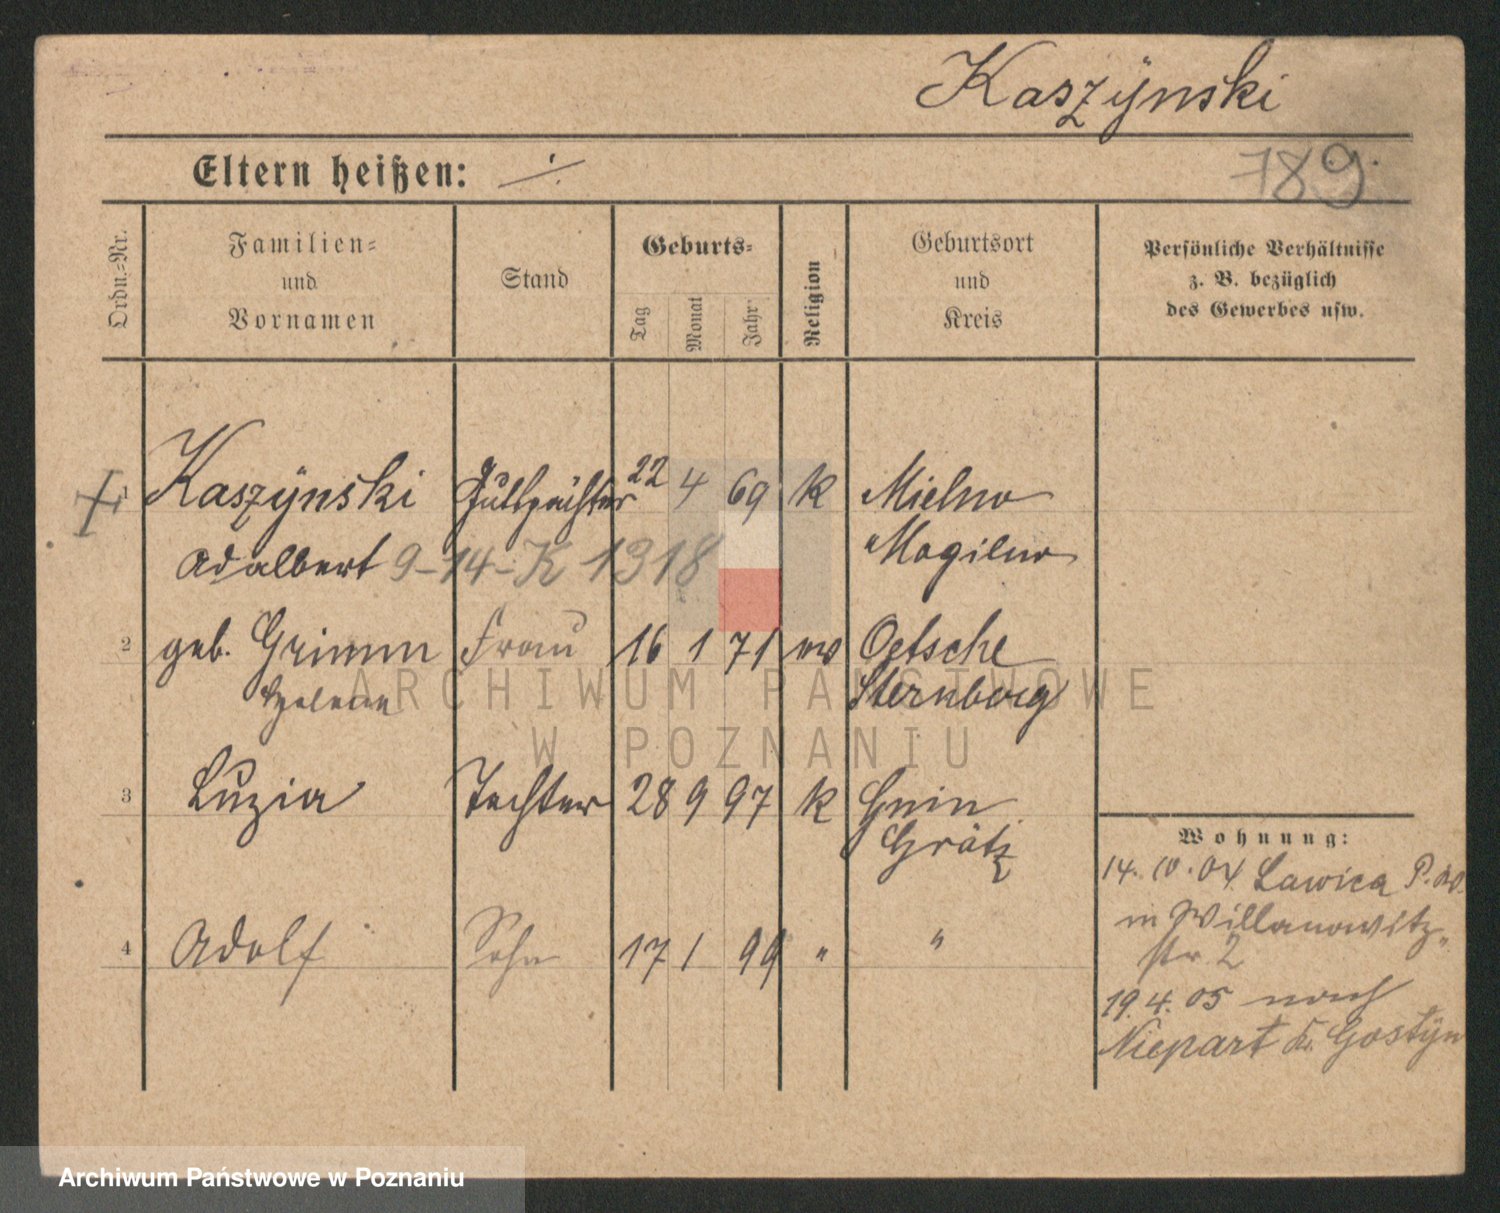 Kaszÿnski
789.
Eltern heißen: ÷
Ordn.=Nr.
Familien=
und
Vornamen
Stand
Geburts=
Tag
Monat
Jahr
Religion
Geburtsort
und
Kreis
Persönliche Verhältnisse
z. B. bezüglich
des Gewerbes usw.
1 Kaszÿnski Gutspächter 22 4 69 K Mielno
Adalbert 9-14-K 1918 Mogilno
2 geb. Grimm Frau 16 1 71 ev Oetsche
Helene Sternberg
ARCHIWUM PAŃSTWOWE
W POZNANIU
3 Luzia Tochter 28 9 97 K Gnin
Grätz
4 Adolf Sohn 17 1 99 " "
Wohnung:
14. 10. 04 Lawica P.
in Willanowitz-
str 2
19. 4. 05 nach
Niepart Kr. Gostÿn
Archiwum Państwowe w Poznaniu